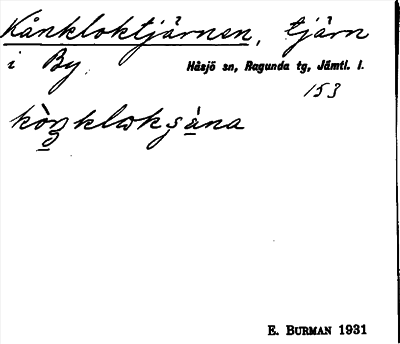 Kånkloktjärnen, tjärn
i By.
Håsjö sn, Ragunda tg, Jämtl. l.
153
E. BURMAN 1931